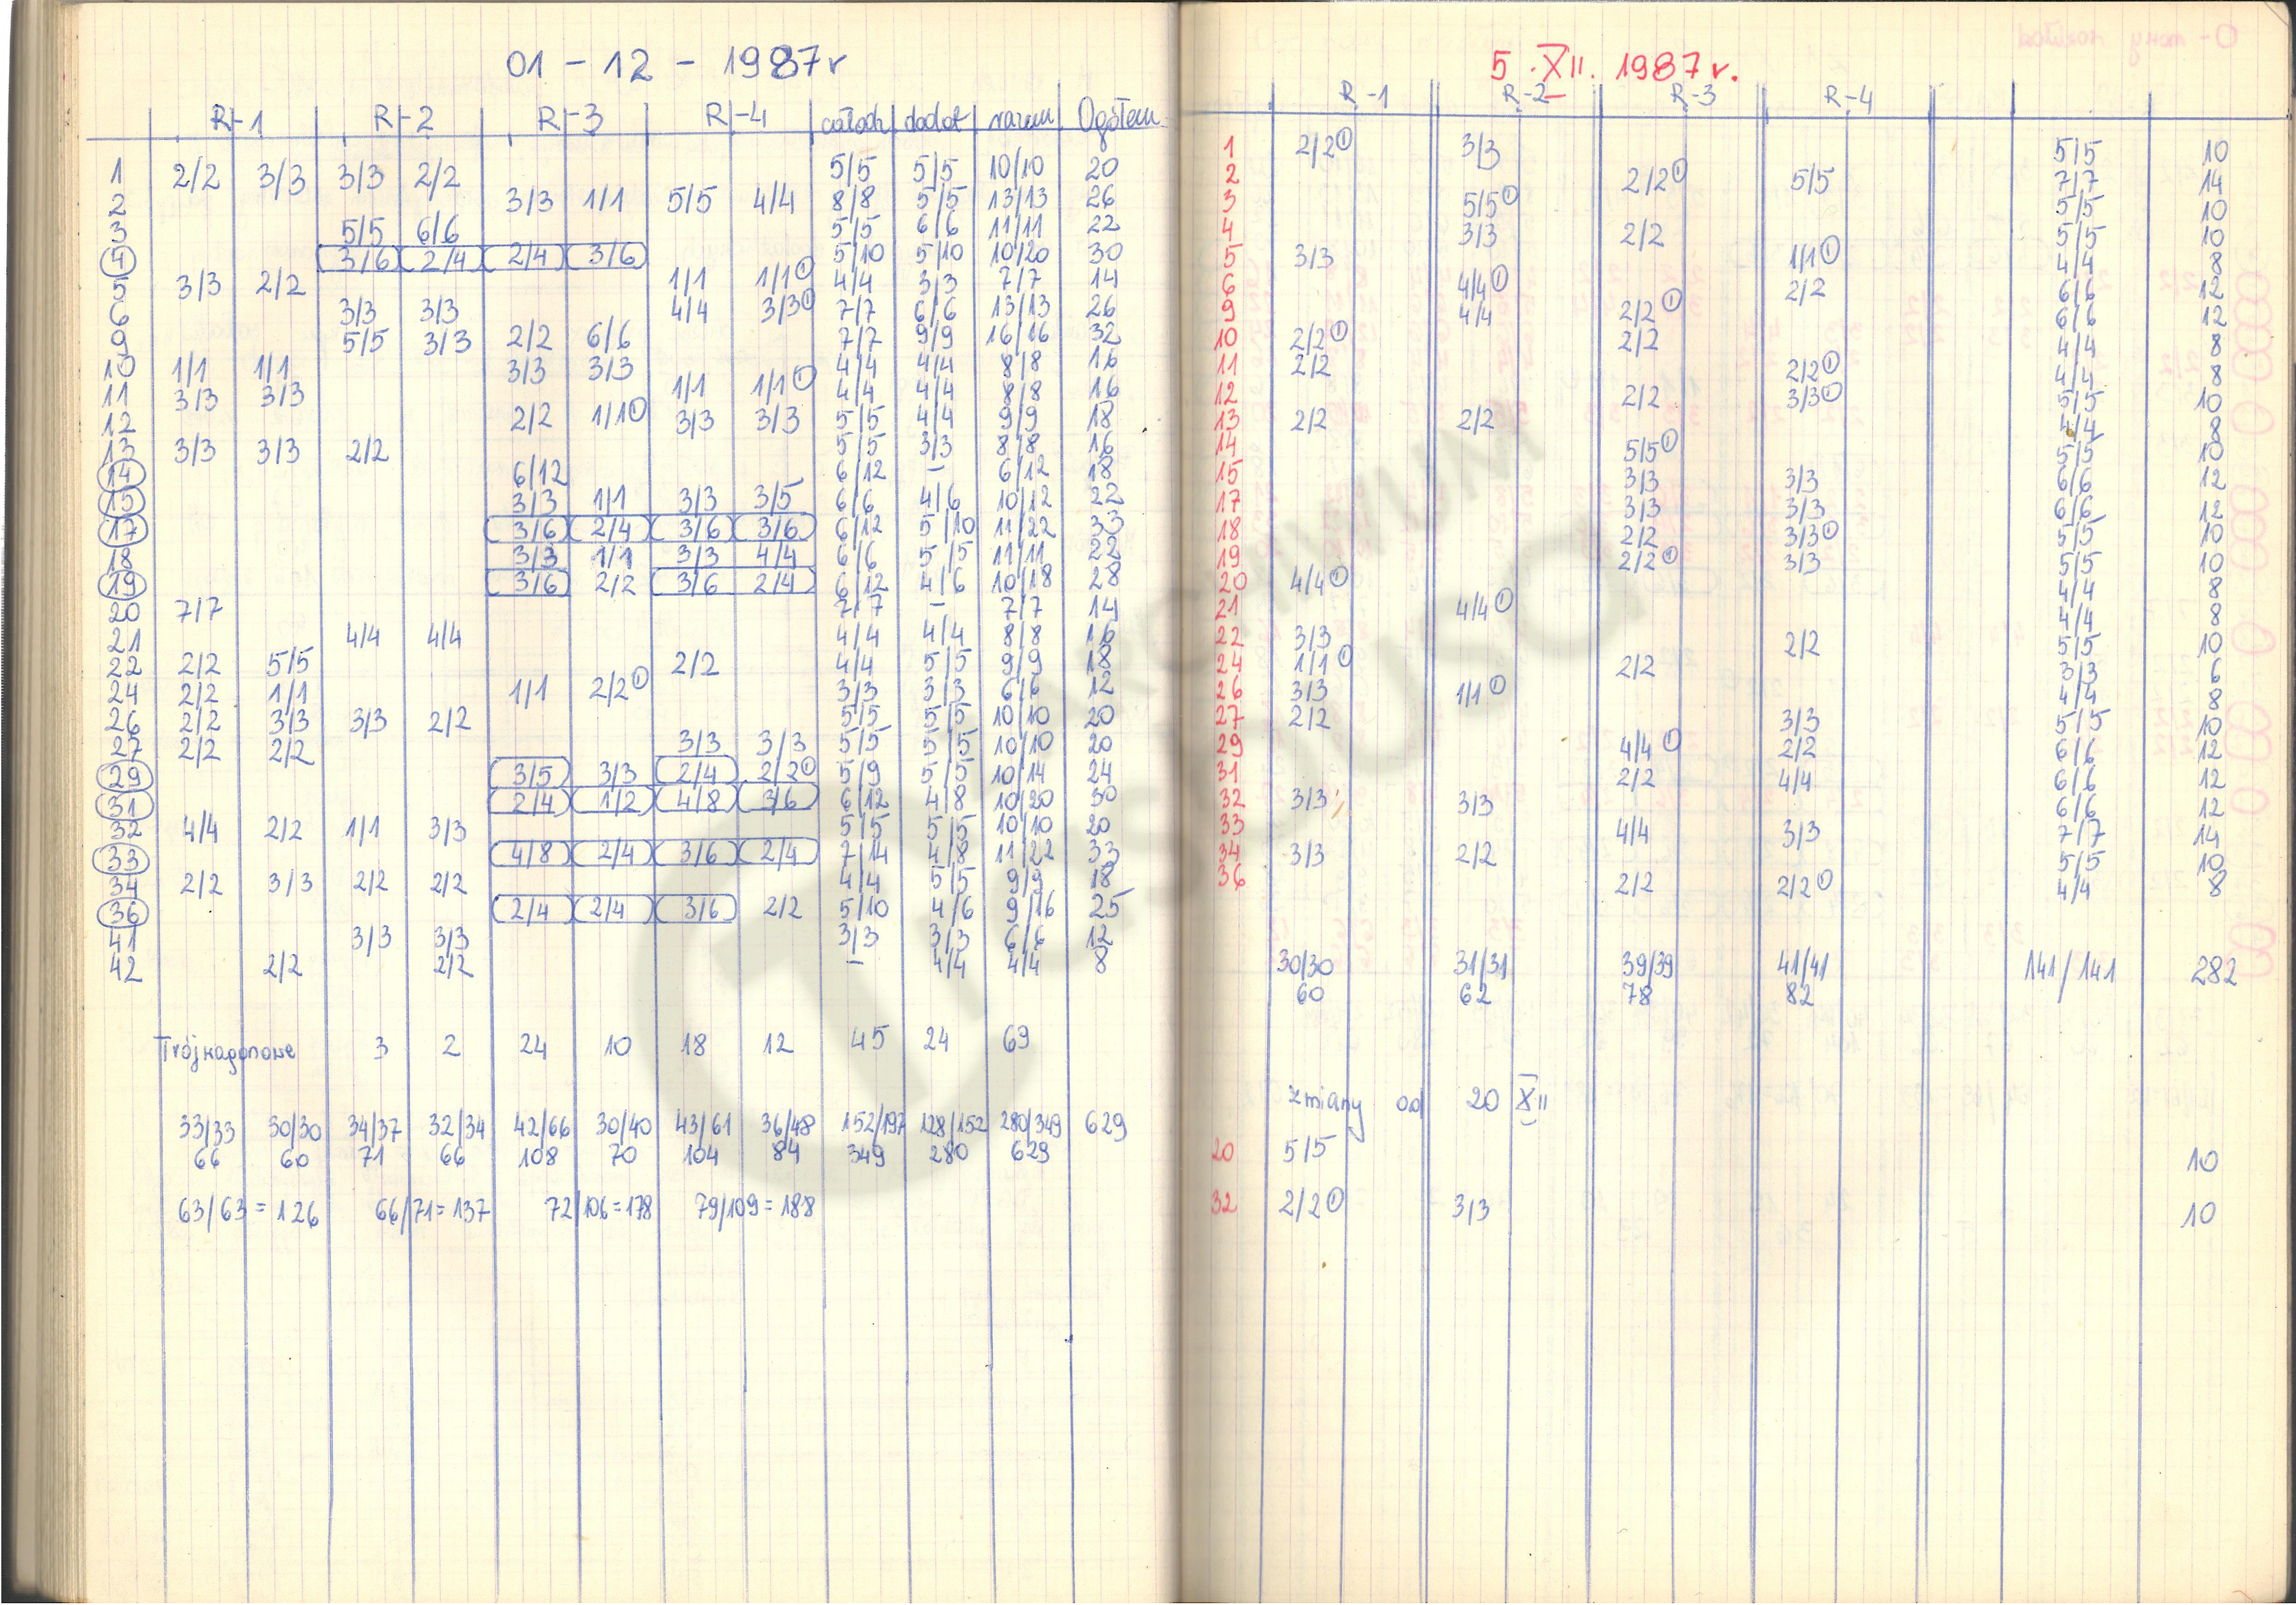 01 - 12 - 1987r
R-1 R-2 R-3 R-4 całodz dodat razem Ogółem
1 2/2 3/3 3/3 2/2 5/5 5/5 10/10 20
2 3/3 1/1 5/5 4/4 8/8 5/5 13/13 26
3 5/5 6/6 5/5 6/6 11/11 22
4 3/6 2/4 2/4 3/6 5/10 5/10 10/20 30
5 3/3 2/2 1/1 1/1① 4/4 3/3 7/7 14
6 3/3 3/3 4/4 3/3① 7/7 6/6 13/13 26
9 5/5 3/3 2/2 6/6 7/7 9/9 16/16 32
10 1/1 1/1 3/3 3/3 4/4 4/4 8/8 16
11 3/3 3/3 1/1 1/1① 4/4 4/4 8/8 16
12 2/2 1/1① 3/3 3/3 5/5 4/4 9/9 18
13 3/3 3/3 2/2 5/5 3/3 8/8 16
14 6/12 6/12 - 6/12 18
15 3/3 1/1 3/3 3/5 6/6 4/6 10/12 22
17 3/6 2/4 3/6 3/6 6/12 5/10 11/22 33
18 3/3 1/1 3/3 4/4 6/6 5/5 11/11 22
19 3/6 2/2 3/6 2/4 6/12 4/6 10/18 28
20 7/7 7/7 - 7/7 14
21 4/4 4/4 4/4 4/4 8/8 16
22 2/2 5/5 2/2 4/4 5/5 9/9 18
24 2/2 1/1 1/1 2/2① 3/3 3/3 6/6 12
26 2/2 3/3 3/3 2/2 5/5 5/5 10/10 20
27 2/2 2/2 3/3 3/3 5/5 5/5 10/10 20
29 3/5 3/3 2/4 2/2① 5/9 5/5 10/14 24
31 2/4 1/2 4/8 3/6 6/12 4/8 10/20 30
32 4/4 2/2 1/1 3/3 5/5 5/5 10/10 20
33 4/8 2/4 3/6 2/4 7/14 4/8 11/22 33
34 2/2 3/3 2/2 2/2 4/4 5/5 9/9 18
36 2/4 2/4 3/6 2/2 5/10 4/6 9/16 25
41 3/3 3/3 3/3 3/3 6/6 12
42 2/2 2/2 - 4/4 4/4 8
Trójwagonowe 3 2 24 10 18 12 45 24 69
33/33 30/30 34/37 32/34 42/66 30/40 43/61 36/48 152/197 128/152 280/349 629
66 60 71 66 108 70 104 84 349 280 629
63/63 = 126 66/71 = 137 72/106 = 178 79/109 = 188
5.XII. 1987r.
R-1 R-2 R-3 R-4
1 2/2① 3/3 5/5 10
2 2/2① 5/5 7/7 14
3 5/5① 5/5 10
4 3/3 2/2 5/5 10
5 3/3 1/1① 4/4 8
6 4/4① 2/2 6/6 12
9 4/4 2/2① 6/6 12
10 2/2① 2/2 4/4 8
11 2/2 2/2① 4/4 8
12 2/2 3/3① 5/5 10
13 2/2 2/2 4/4 8
14 5/5① 5/5 10
15 3/3 3/3 6/6 12
17 3/3 3/3 6/6 12
18 2/2 3/3① 5/5 10
19 2/2① 3/3 5/5 10
20 4/4① 4/4 8
21 4/4① 4/4 8
22 3/3 2/2 5/5 10
24 1/1① 2/2 3/3 6
26 3/3 1/1① 4/4 8
27 2/2 3/3 5/5 10
29 4/4① 2/2 6/6 12
31 2/2 4/4 6/6 12
32 3/3 3/3 6/6 12
33 4/4 3/3 7/7 14
34 3/3 2/2 5/5 10
36 2/2 2/2① 4/4 8
30/30 31/31 39/39 41/41 141/141 282
60 62 78 82
zmiany od 20 XII
20 5/5 10
32 2/2① 3/3 10